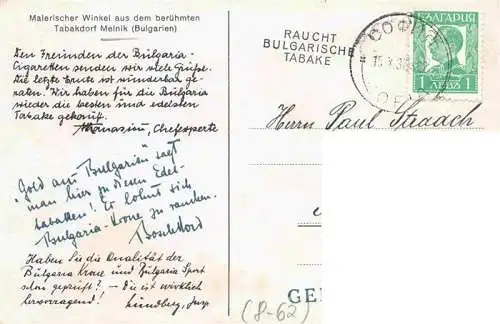 Malerischer Winkel aus dem berühmten
Tabakdorf Melnik (Bulgarien)
Den Freunden der Bulgaria-
Cigaretten senden wir viele Grüße.
Die letzte Ernte ist wunderbar ge-
raten. Wir haben für die Bulgaria
wieder die besten und edelsten
Tabake gekauft.
Athanasiu, Chefexperte
"Gold aus Bulgarien" sagt
man hier zu diesen Edel-
tabaken! Es lohnt sich
Bulgaria-Krone zu rauchen.
Haben Sie die Qualität der
Bulgaria Krone und Bulgaria Sport
schon geprüft? – die ist wirklich
hervorragend!
Lundberg, Insp
RAUCHT
BULGARISCHE
TABAKE
СОФИЯ
БЪЛГАРИЯ
1 ЛЕВЪ 1
Herrn Paul Straach
GE
(8-62)